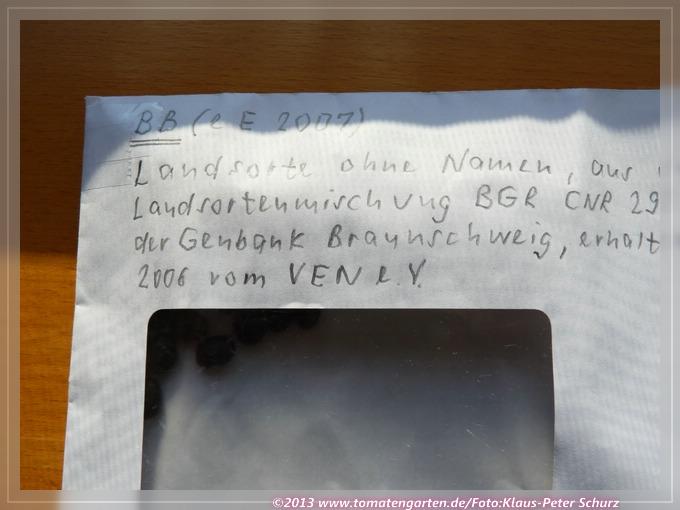 BB (e E 2007)
Landsorte ohne Namen, aus
Landsortenmischung BGR CNR 29
der Genbank Braunschweig, erhalt
2006 vom VEN e.V.
©2013 www.tomatengarten.de/Foto:Klaus-Peter Schurz